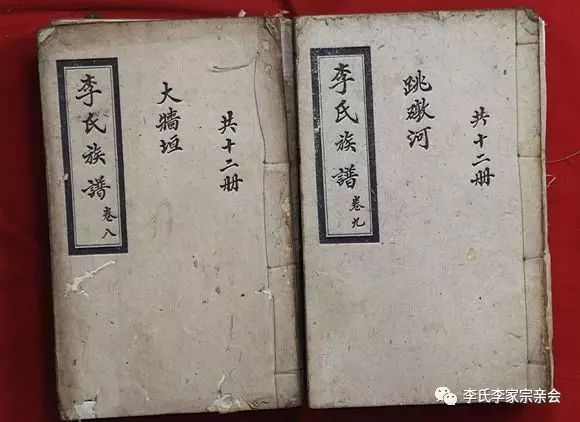 李氏族譜 卷八
大墻垣
共十二册
李氏族譜 卷九
跳礅河
共十二册
李氏李家宗亲会